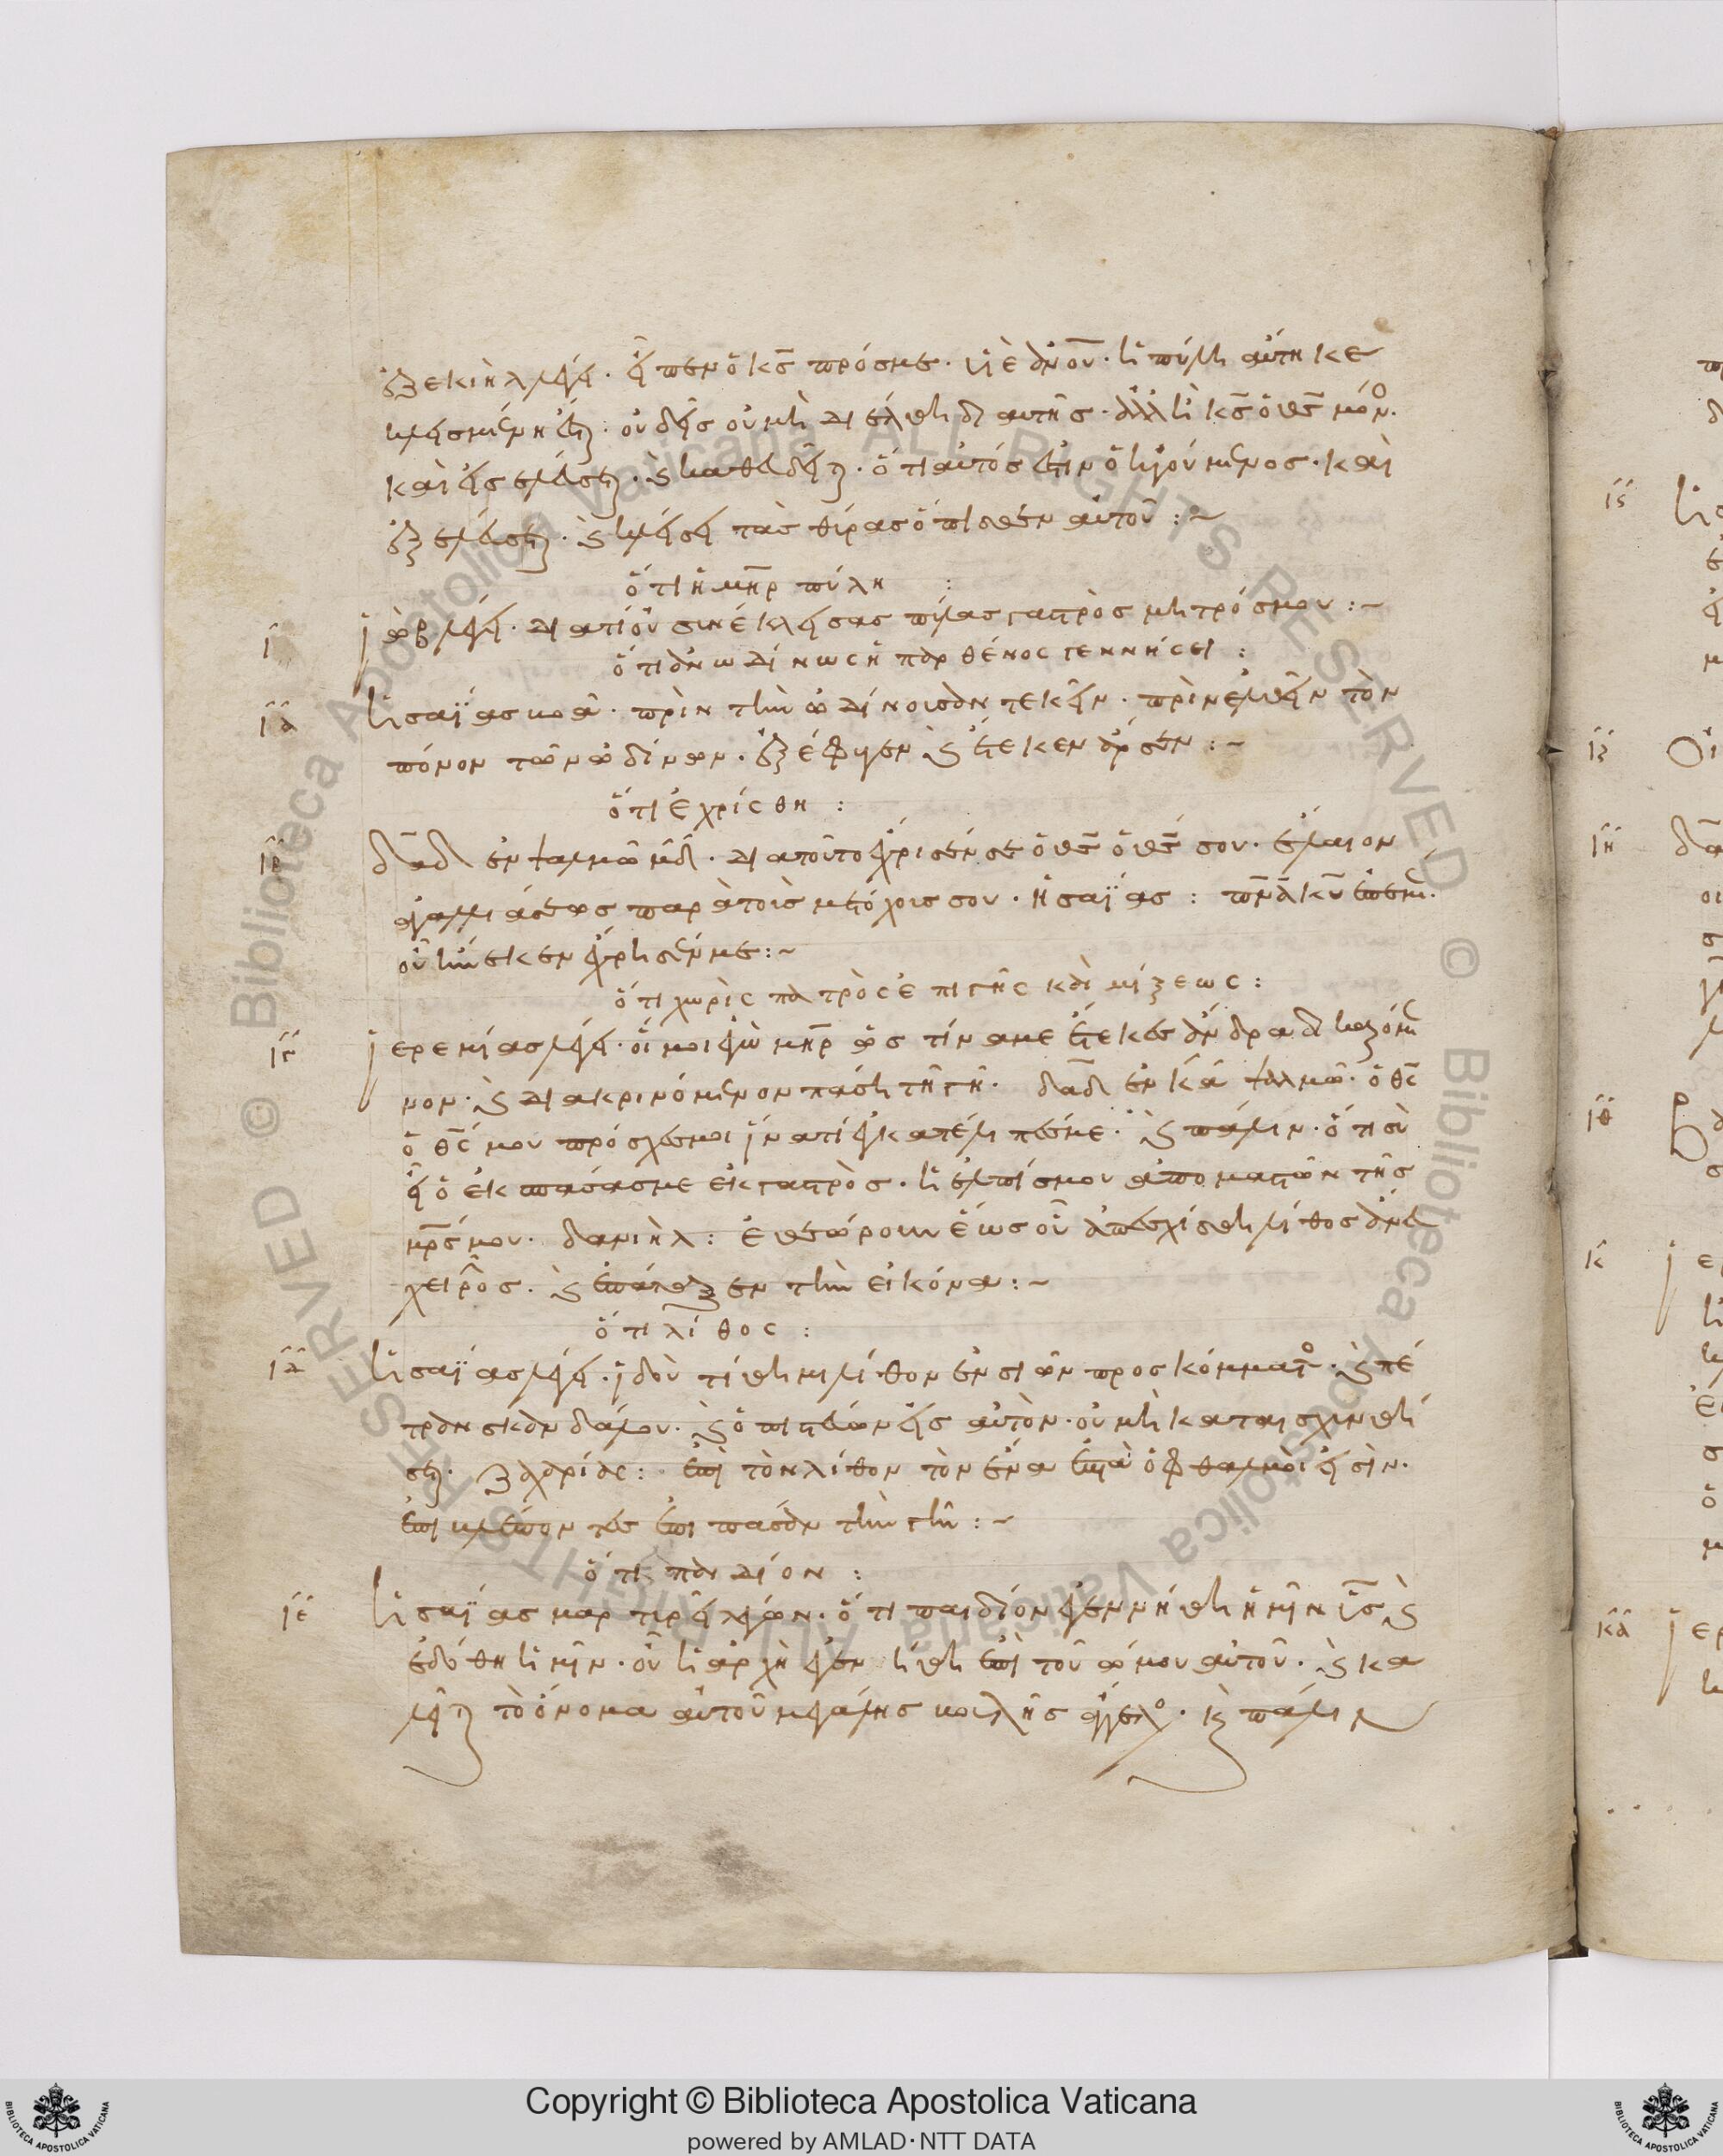 ἐζεκιὴλ λέγει· εἶπεν ὁ κς̅ πρός με· υἱὲ ἀν̅ου̅· ἡ πύλη αὕτη κε
κλεισμένη ἔσται· οὐδεὶς οὐ μὴ διέλθη δι αὐτῆς· ἀλλ ἢ κς̅ ὁ θς̅ μόνο·
καὶ εἰσελεύσεται· καὶ καθεδεῖται· ὅτι αὐτός ἐστιν ὁ ἡγούμενος· καὶ
ἐξελεύσεται· καὶ κλείσει τὰς θύρας ὄπισθεν αὐτοῦ :~
ὅτι ἡ μη̅ρ πύλη :
ι ἰὼβ λέγει· διατί οὐ συνέκλεισας πύλας γαστρὸς μητρός μου :~
ὅτι ἀνωδίνως ἡ παρθένος γεννήσει :
ια ἡσαΐας βοᾶ· πρὶν τὴν ὠδίνουσαν τεκεῖν· πρὶν ἐλθεῖν τὸν
πόνον τῶν ὠδίνων· ἐξέφυγεν καὶ ἔτεκεν ἄρσεν :~
ὅτι ἐχρίσθη :
ιβ δα̅δ ἐν ψαλμῶ μδ· διατοῦτο ἔχρισέν σε ὁ θς̅ ὁ θς̅ σου· ἔλαιον
ἀγαλλιάσεως παρὰ τοὺς μετόχους σου· ἡσαΐας : πν̅α κυ̅ ἐπ ἐμέ·
οὗ εἵνεκεν ἔχρησέν με :~
ὅτι χωρὶς πατρὸς ἐπι γῆς καὶ μίξεως :
ιγ ἰερεμίας λέγει· οἴμοι ἐγὼ μη̅ρ ὡς τίνα με ἔτεκες ἄνδρα δικαζόμε
νον· καὶ διακρινόμενον πάση τῆ γῆ· δα̅δ ἐν κα ψαλμῶ· ὁ θς̅
ὁ θς̅ μου πρόσχες μοι ἵνατί ἐγκατέλιπές με· καὶ πάλιν· ὅτι σὺ
εἶ ὁ ἐκσπάσας με ἐκ γαστρὸς· ἡ ἐλπίς μου ἀπο μαστῶν τῆς
μρ̅ς μου· δανιὴλ : ἐθεώρουν ἕως οὗ ἀπεσχίσθη λίθος ἄνευ
χειρὸς· καὶ ἐπάταξεν τὴν εἰκόνα :~
ὅτι λίθος :
ιδ ἡσαΐας λέγει· ἰδοὺ τίθημι λίθον ἐν σιὼν προσκόμματο· καὶ πέ
τραν σκανδάλου· καὶ ὁ πιστεύων εἰς αὐτὸν· οὐ μὴ καταισχυνθή
σεται· ζαχαρίας : ἐπὶ τὸν λίθον τὸν ἕνα ἑπτὰ ὀφθαλμοί εἰσὶν·
ἐπιβλέποντες ἐπι πᾶσαν τὴν γῆν :~
ὅτι παιδίον :
ιε ἡσαΐας μαρτυρεῖ λέγων· ὅτι παιδίον ἐγεννήθη ἡμῖν υς̅ καὶ
ἐδόθη ἡμῖν· οὗ ἡ ἀρχὴ ἐγενήθη ἐπὶ τοῦ ὤμου αὐτοῦ· καὶ κα
λεῖται τὸ ὄνομα αὐτοῦ μεγάλης βουλῆς ἄγγελο· καὶ πάλιν
ιϛ
ιζ
ιη
ιθ
κ
κα